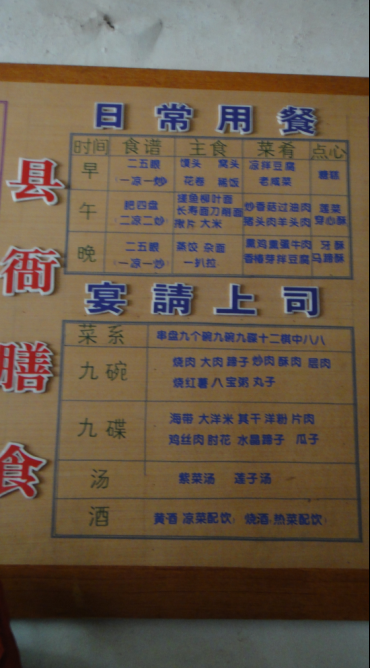 县衙膳食
日常用餐
时间 食谱 主食 菜肴 点心
早 二五眼 馍头 窝头 凉拌豆腐
一凉一炒 花卷 老咸菜 糖糕
午 四盘 摸鱼柳叶面 炒香菇过油肉 莲菜
二凉二炒 长寿面刀削面 猪头肉羊头肉 穿心酥
揪片 大米
晚 二五眼 蒸饺 杂面 熏鸡熏蛋牛肉 牙酥
一凉一炒 一扒拉 香椿芽拌豆腐 马蹄酥
宴請上司
菜系 串盘九个碗九碗九碟十二棋中八八
九碗 烧肉 大肉 蹄子 炒肉 酥肉 扈肉
烧红薯 八宝粥 丸子
九碟 海带 大洋米 其干 洋粉 片肉
鸡丝肉 肘花 水晶蹄子 瓜子
汤 紫菜汤 莲子汤
酒 黄酒 凉菜配饮 烧酒 热菜配饮